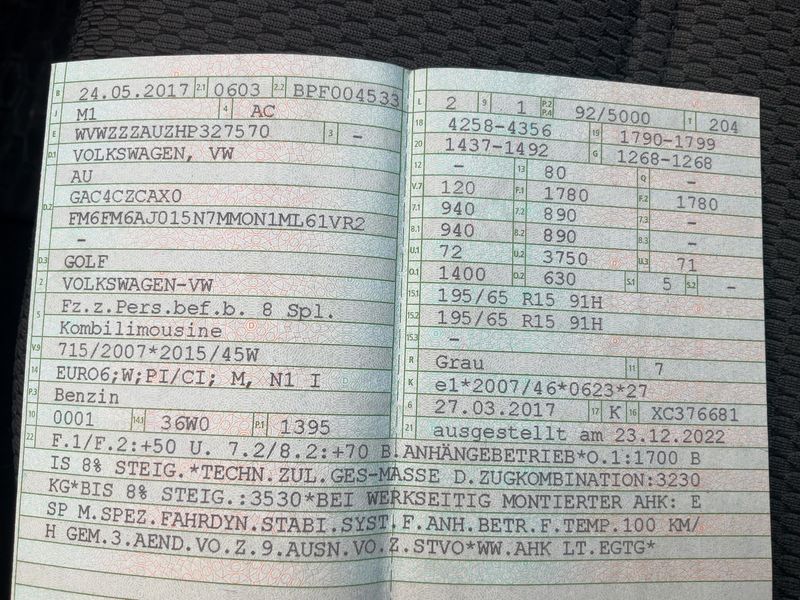 B 24.05.2017 2.1 0603 2.2 BPF004533
J M1 4 AC
E WVWZZZAUZHP327570 3 –
D.1 VOLKSWAGEN, VW
AU
D.2 GAC4CZCAX0
FM6FM6AJ015N7MMON1ML61VR2
–
D.3 GOLF
2 VOLKSWAGEN-VW
5 Fz.z.Pers.bef.b. 8 Spl.
Kombilimousine
V.9 715/2007*2015/45W
14 EURO6;W;PI/CI; M, N1 I
P.3 Benzin
10 0001 14.1 36W0 P.1 1395
L 2 9 1 P.2 P.4 92/5000 T 204
18 4258-4356 19 1790-1799
20 1437-1492 G 1268-1268
12 – 13 80 Q –
V.7 120 F.1 1780 F.2 1780
7.1 940 7.2 890 7.3 –
8.1 940 8.2 890 8.3 –
U.1 72 U.2 3750 U.3 71
O.1 1400 O.2 630 S.1 5 S.2 –
15.1 195/65 R15 91H
15.2 195/65 R15 91H
15.3 –
R Grau 11 7
K e1*2007/46*0623*27
6 27.03.2017 17 K 16 XC376681
21 ausgestellt am 23.12.2022
22 F.1/F.2:+50 U. 7.2/8.2:+70 B.ANHÄNGEBETRIEB*O.1:1700 B
IS 8% STEIG.*TECHN.ZUL.GES-MASSE D.ZUGKOMBINATION:3230
KG*BIS 8% STEIG.:3530*BEI WERKSEITIG MONTIERTER AHK: E
SP M.SPEZ.FAHRDYN.STABI.SYST.F.ANH.BETR.F.TEMP.100 KM/
H GEM.3.AEND.VO.Z.9.AUSN.VO.Z.STVO*WW.AHK LT.EGTG*